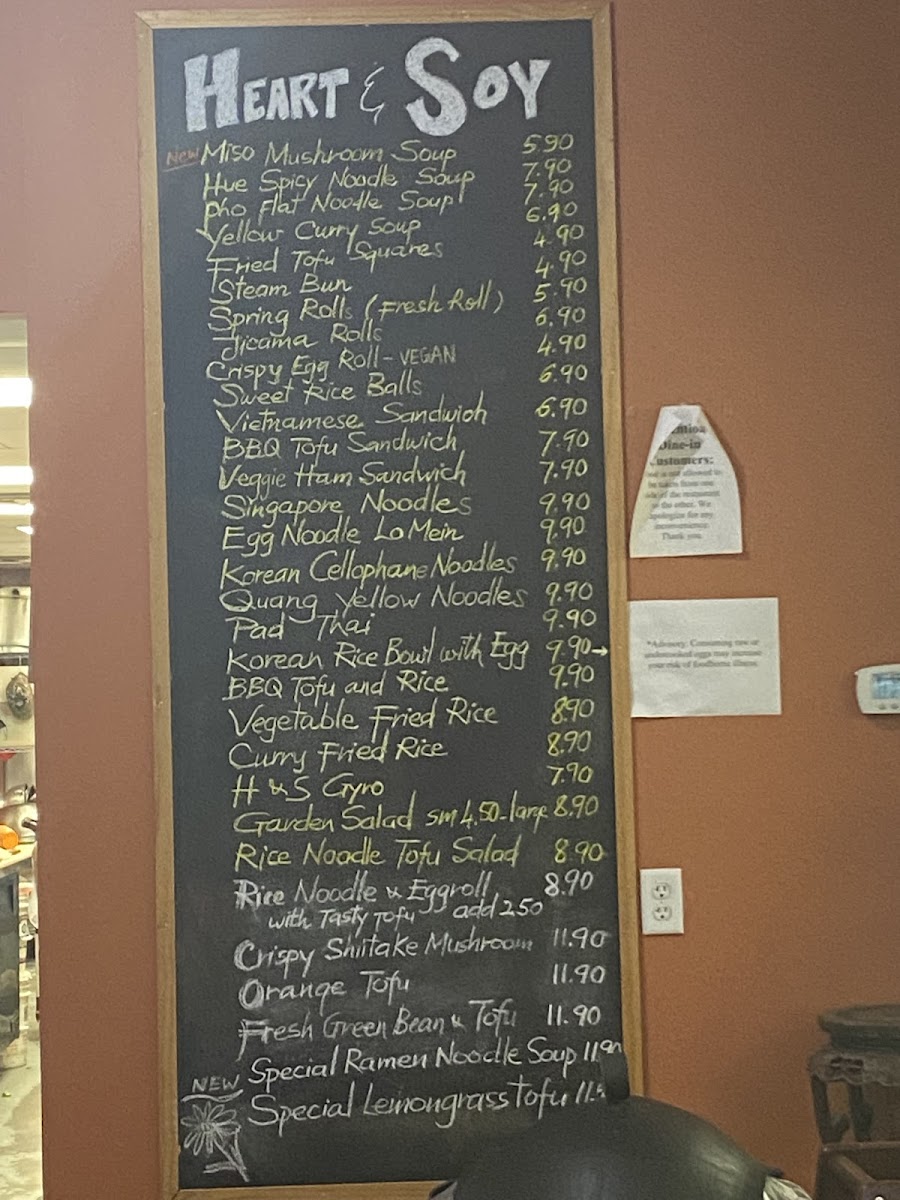 HEART & SOY
New Miso Mushroom Soup 5.90
Hue Spicy Noodle Soup 7.90
Pho Flat Noodle Soup 7.90
Yellow Curry Soup 6.90
Fried Tofu Squares 4.90
Steam Bun 4.90
Spring Rolls (Fresh Roll) 5.90
Jicama Rolls 6.90
Crispy Egg Roll - VEGAN 4.90
Sweet Rice Balls 6.90
Vietnamese Sandwich 6.90
BBQ Tofu Sandwich 7.90
Veggie Ham Sandwich 7.90
Singapore Noodles 9.90
Egg Noodle Lo Mein 9.90
Korean Cellophane Noodles 9.90
Quang Yellow Noodles 9.90
Pad Thai 9.90
Korean Rice Bowl with Egg 9.90→
BBQ Tofu and Rice 9.90
Vegetable Fried Rice 8.90
Curry Fried Rice 8.90
H & S Gyro 7.90
Garden Salad sm 4.50 - large 8.90
Rice Noodle Tofu Salad 8.90
Rice Noodle & Eggroll 8.90
with Tasty Tofu add 2.50
Crispy Shiitake Mushroom 11.90
Orange Tofu 11.90
Fresh Green Bean & Tofu 11.90
Special Ramen Noodle Soup 11.90
NEW Special Lemongrass Tofu
Dine-in
Customers:
be taken from one
side of the restaurant
to the other. We
apologize for any
inconvenience.
Thank you.
*Advisory: Consuming raw or
undercooked eggs may increase
your risk of foodborne illness.